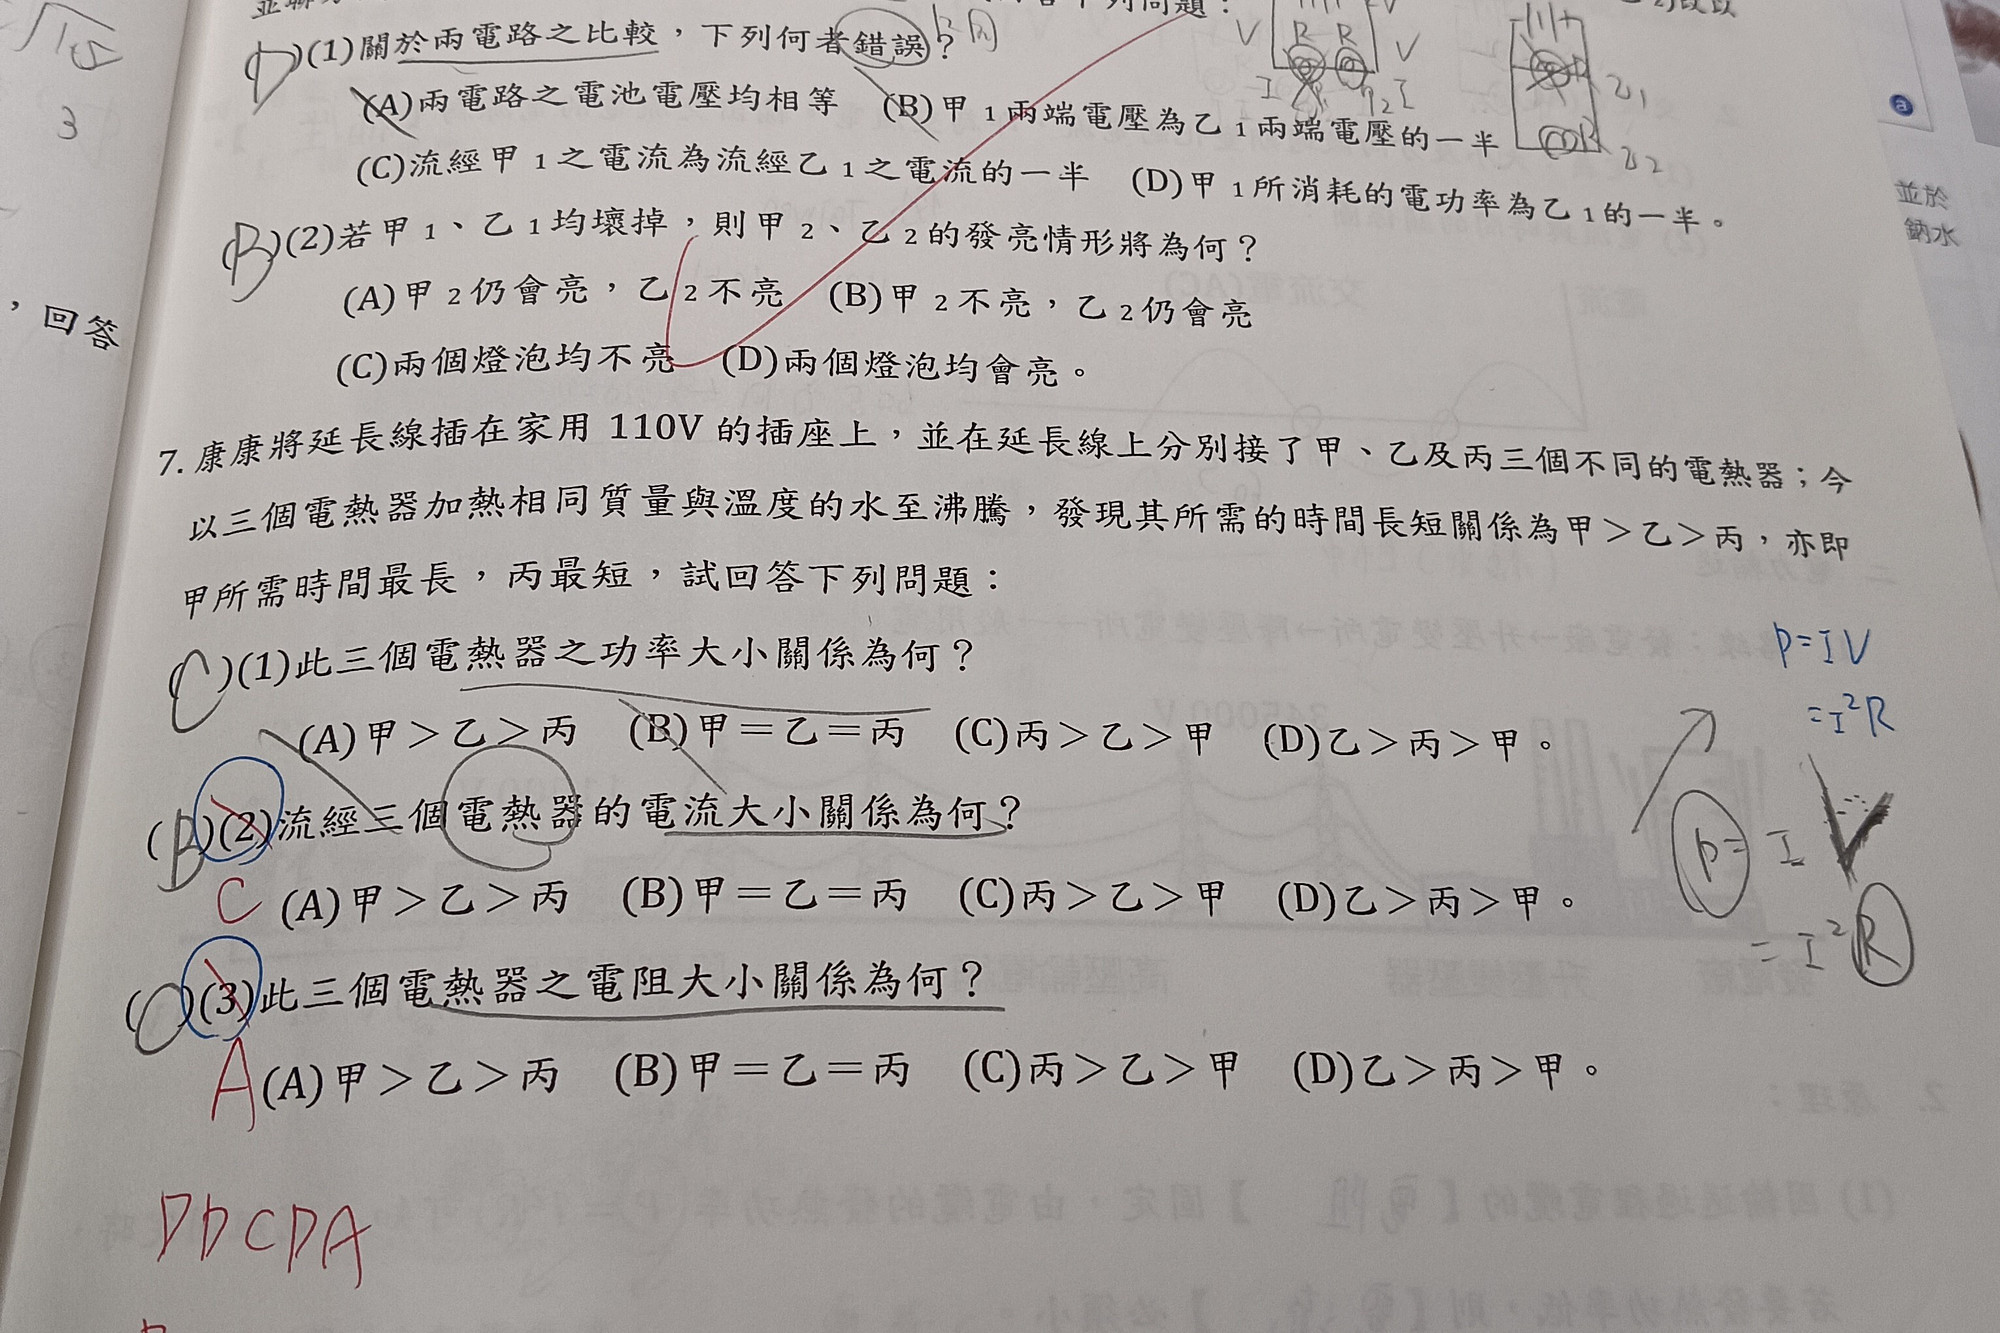 (1)關於兩電路之比較，下列何者錯誤？
(A)兩電路之電池電壓均相等 (B)甲1兩端電壓為乙1兩端電壓的一半
(C)流經甲1之電流為流經乙1之電流的一半 (D)甲1所消耗的電功率為乙1的一半。
(B)(2)若甲1、乙1均壞掉，則甲2、乙2的發亮情形將為何？
(A)甲2仍會亮，乙2不亮 (B)甲2不亮，乙2仍會亮
(C)兩個燈泡均不亮 (D)兩個燈泡均會亮。
7.康康將延長線插在家用 110V 的插座上，並在延長線上分別接了甲、乙及丙三個不同的電熱器；今
以三個電熱器加熱相同質量與溫度的水至沸騰，發現其所需的時間長短關係為甲＞乙＞丙，亦即
甲所需時間最長，丙最短，試回答下列問題：
(C)(1)此三個電熱器之功率大小關係為何？
(A)甲＞乙＞丙 (B)甲＝乙＝丙 (C)丙＞乙＞甲 (D)乙＞丙＞甲。
(B)(2)流經三個電熱器的電流大小關係為何？
C
(A)甲＞乙＞丙 (B)甲＝乙＝丙 (C)丙＞乙＞甲 (D)乙＞丙＞甲。
(C)(3)此三個電熱器之電阻大小關係為何？
A
(A)甲＞乙＞丙 (B)甲＝乙＝丙 (C)丙＞乙＞甲 (D)乙＞丙＞甲。
P=IV
=I²R
P= I V
= I²R
DDCDA
3
，回答
並於
鈉水